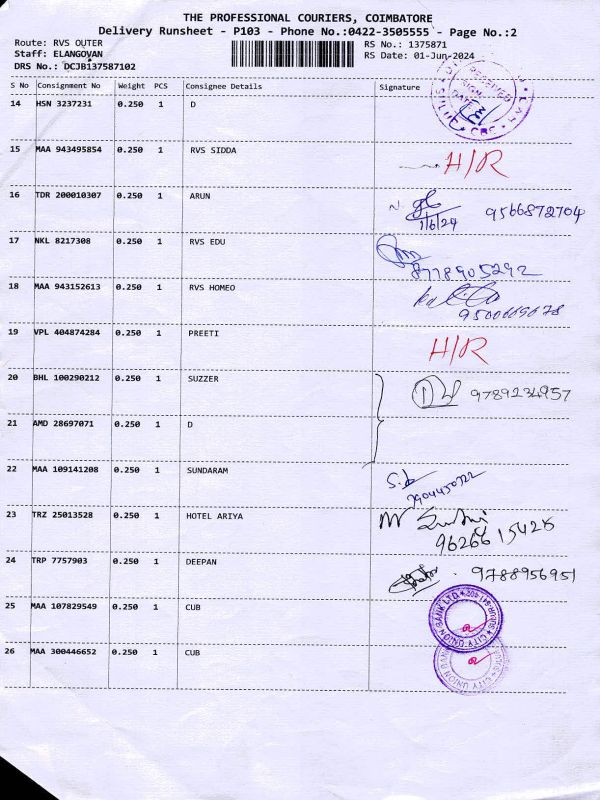 THE PROFESSIONAL COURIERS, COIMBATORE
Delivery Runsheet - P103 - Phone No.:0422-3505555 - Page No.:2
Route: RVS OUTER
RS No.: 1375871
Staff: ELANGOVAN
RS Date: 01-Jun-2024
DRS No.: DCJB137587102
S No Consignment No Weight PCS Consignee Details Signature
14 HSN 3237231 0.250 1 D
RECEIVED
SIGN
DATE
15 MAA 943495854 0.250 1 RVS SIDDA H/R
16 TDR 200010307 0.250 1 ARUN 9566872704
1/6/24
17 NKL 8217308 0.250 1 RVS EDU
8778905292
18 MAA 943152613 0.250 1 RVS HOMEO
9500669678
19 VPL 404874284 0.250 1 PREETI H/R
20 BHL 100290212 0.250 1 SUZZER 9789234957
21 AMD 28697071 0.250 1 D
22 MAA 109141208 0.250 1 SUNDARAM
23 TRZ 25013528 0.250 1 HOTEL ARIYA
9626615428
24 TRP 7757903 0.250 1 DEEPAN 9788956951
25 MAA 107829549 0.250 1 CUB
CITY UNION BANK LTD.
26 MAA 300446652 0.250 1 CUB
CITY UNION BANK